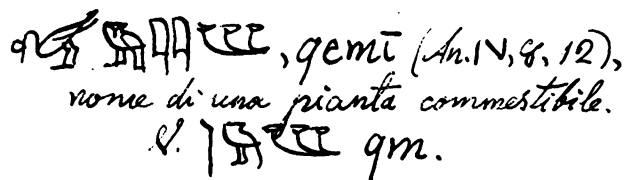 , qemī (An. IV, 8, 12),
nome di una pianta commestibile.
V. qm.